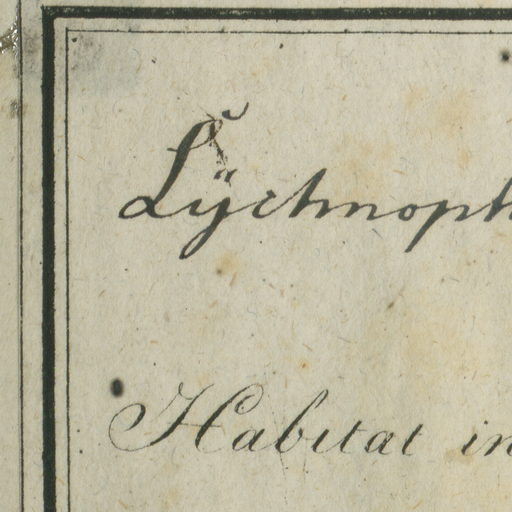 Lÿchnoph
Habitat in